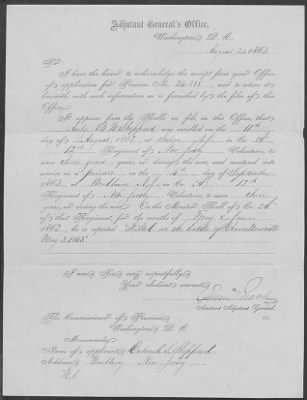 Adjutant General's Office,
Washington, D. C.
August 24 1863
Sir:
I have the honor to acknowledge the receipt from your Office
of application for Pension No. 26.288 and to return it
herewith, with such information as is furnished by the files of this
Office.
It appears from the Rolls on file in this Office, that
Sheppard was enrolled on the 11th
day of August, 1862, at in Co. A.
12th Regiment of New Jersey Volunteers, to
serve three years, or during the war, and mustered into
service as a private on the 4th day of September
1862, at Woodbury, in Co. A. 12th
Regiment of New Jersey Volunteers, to serve three
years, or during the war. On the Muster Roll of Co. A
of that Regiment, for the months of May & June
1863, he is reported "Killed at the battle of Chancellorsville
May 3. 1863"
I am, Sir, very respectfully,
Your obedient servant,
Assistant Adjutant General.
The Commissioner of Pensions,
Washington, D. C.
Memoranda:
Name of applicant, Sheppard
Address, New Jersey